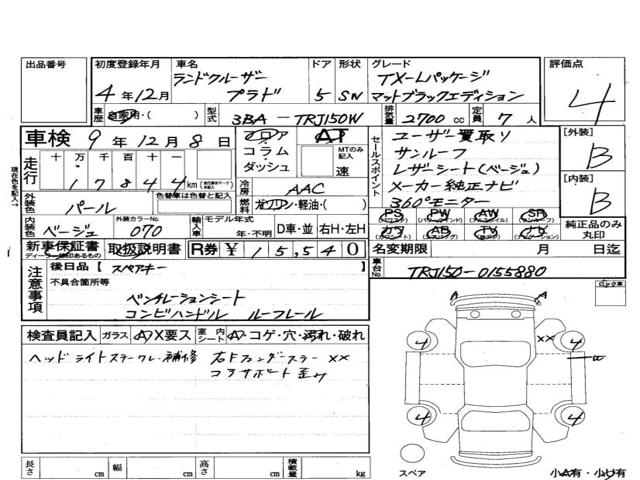 出品番号 初度登録年月 車名 ドア 形状 グレード 評価点
4年12月 ランドクルーザー プラド 5 SW TX-Lパッケージ マットブラックエディション 4
車歴 自家用・( ) 型式 3BA-TRJ150W 排気量 2700 cc 定員 7 人
車検 9年12月8日 フロア コラム ダッシュ AT MTのみ記入 速
セールスポイント ユーザー買取り
サンルーフ
レザーシート(ベージュ)
メーカー純正ナビ
360°モニター
[外装] B
[内装] B
現在色を記入→
走行 十 万 千 百 十 一
17844 km
冷房 AAC
外装色 パール 色替車は色替と記入 燃料 ガソリン・軽油・( )
内装色 ベージュ 外装カラーNo. 070 輸入車 モデル年式 年・不明 D車・並 右H・左H
PS PW AW SR
カワ AB TV ナビ
純正品のみ丸印
新車保証書 取扱説明書 R券 ¥ 15,540 名変期限 月 日迄
注意事項 後日品【 スペアキー 】
不具合箇所等
ベンチレーションシート
コンビハンドル ルーフレール
車台No. TRJ150-0155880
検査員記入 ガラス A X要ス 室内シート A・コゲ・穴・汚れ・破れ
ヘッドライトステーワレ・補修 右Fフェンダーステー XX
コアサポート歪み
A A
4 4
XX
4 4
スペア
小A有・小U有
長さ cm 幅 cm 高さ cm 積載量 kg